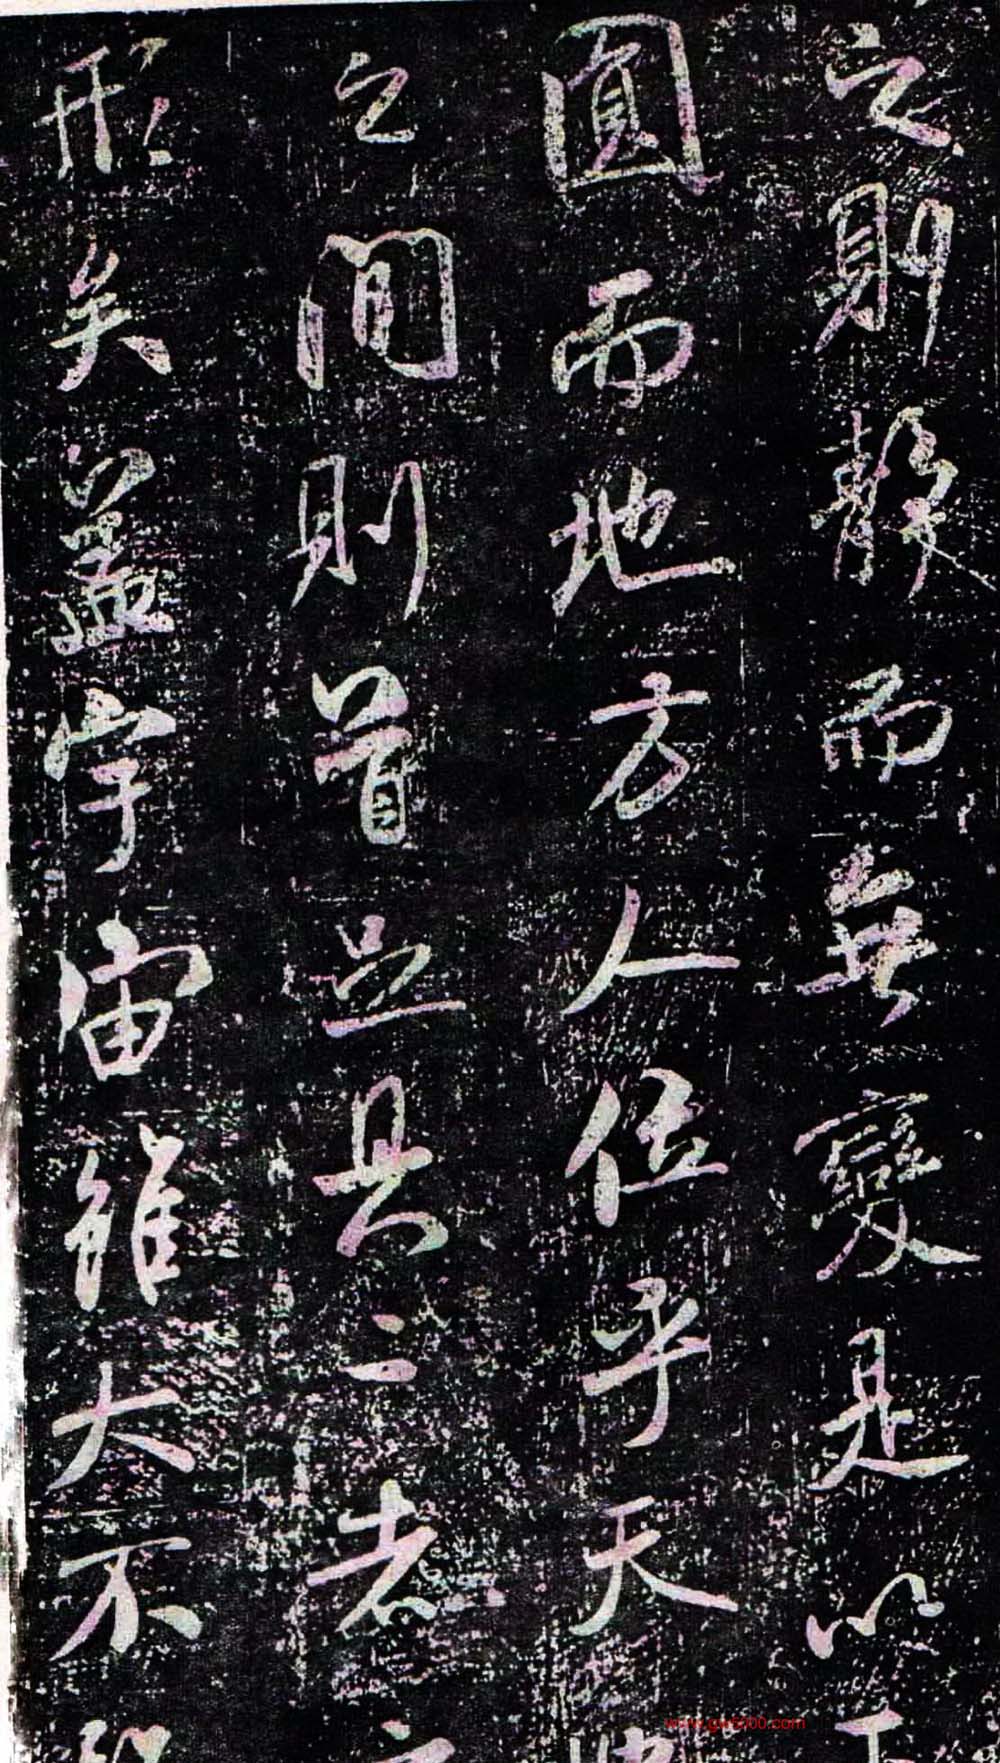 之則靜而無變是以
圓而地方人位乎天
之間則首足具二者
形矣蓋宇宙雖大不
www.gw5000.com